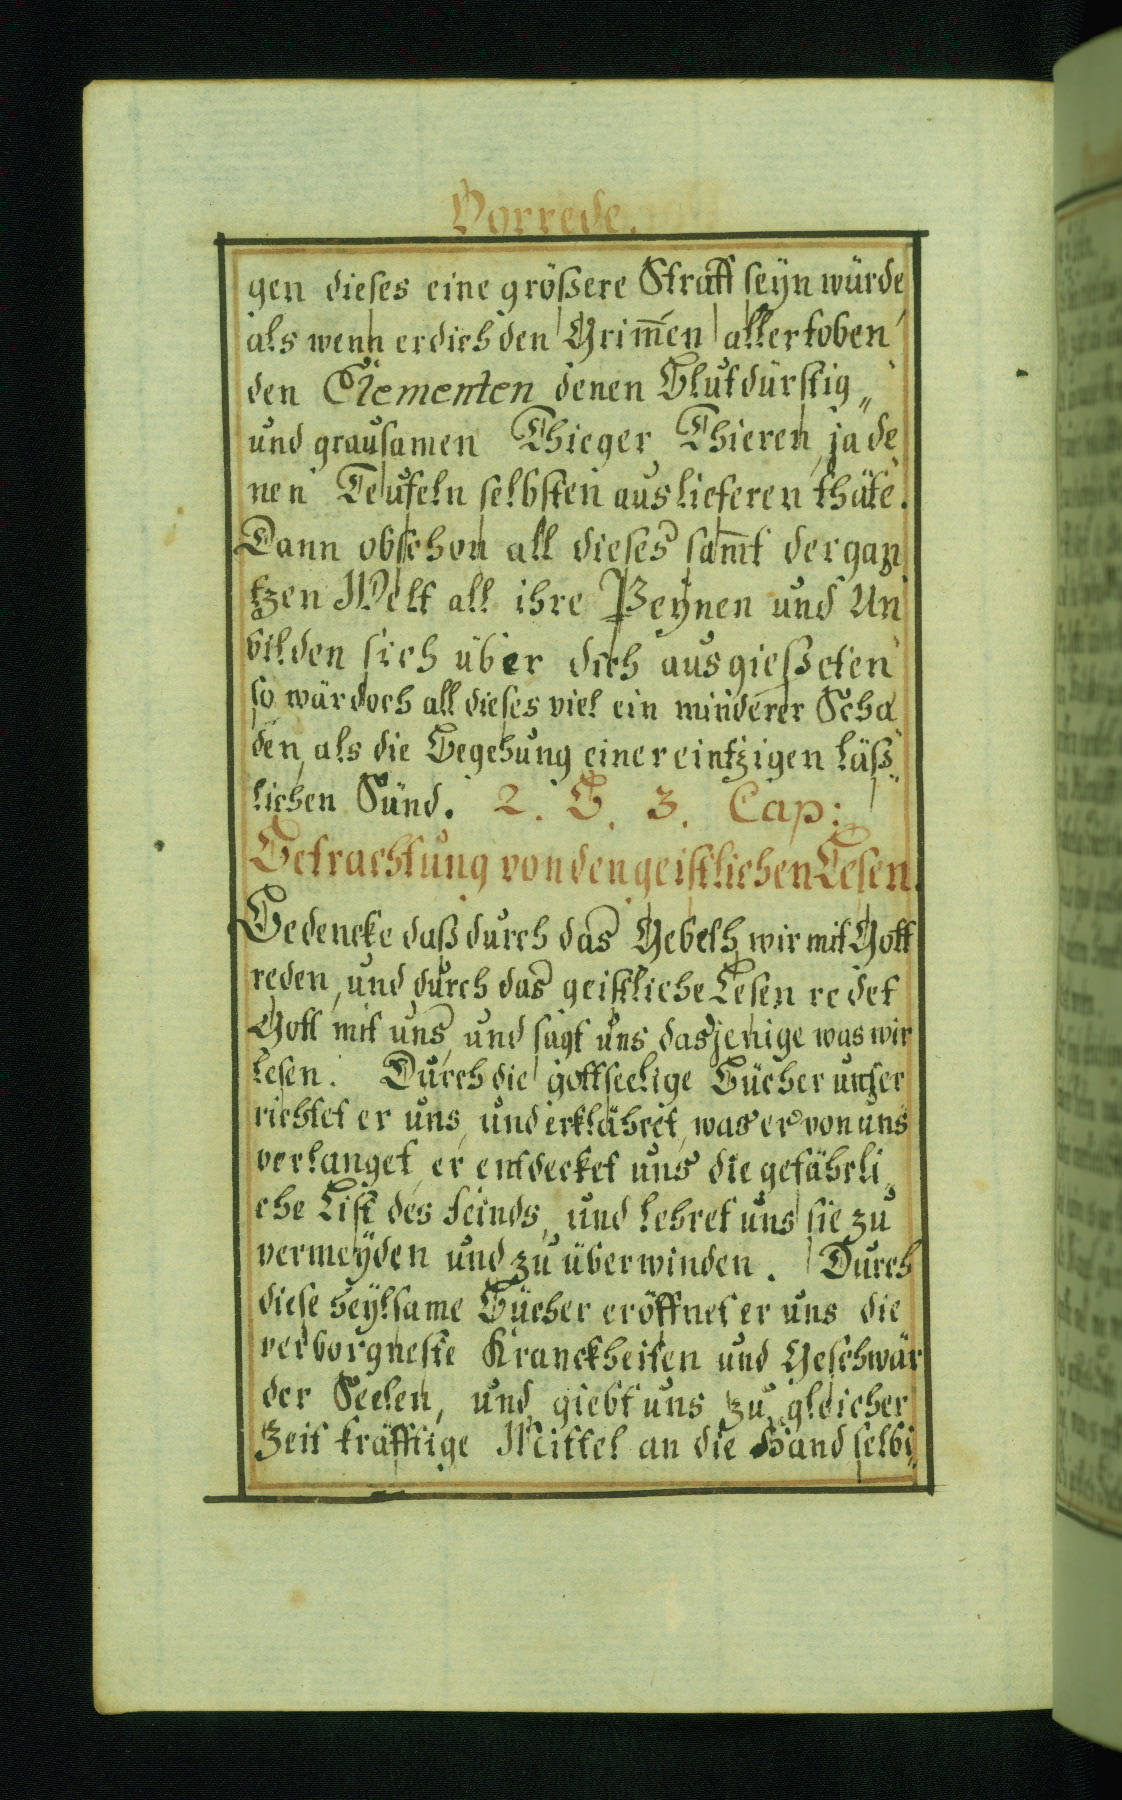 Vorrede.
gen dieses eine größere Straff seyn würde
als wenn er dich den Grim̅en aller toben
den Elementen denen Blutdürstig„
und grausamen Thieger Thieren, ja de
nen Teufeln selbsten auslieferen thäte.
Dann obschon all dieses sam̅t der gan
tzen Welt all ihre Peynen und Un
bilden sich über dich ausgießeten
so wär doch all dieses viel ein minderer Scha
den, als die Begehung einer eintzigen läß„
lichen Sünd. 2. B. 3. Cap:
Betrachtung von den geistlichen Lesen.
Bedencke daß durch das Gebeth wir mit Gott
reden, und durch das geistliche Lesen redet
Gott mit uns, und sagt uns dasjenige was wir
lesen. Durch die gottseelige Bücher unter
richtet er uns, und erklähret, was er von uns
verlanget, er entdecket uns die gefährli„
che List des Feinds, und lehret uns sie zu
vermeyden und zu überwinden. Durch
diese heylsame Bücher eröffnet er uns die
verborgneste Kranckheiten und Geschwär
der Seelen, und giebt uns zu gleicher
Zeit kräfftige Mittel an die Hand selbi„